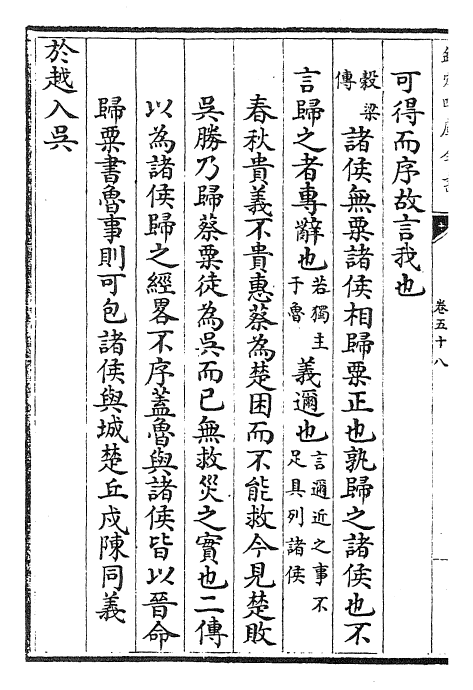 可得而序故言我也
穀梁傳諸侯無粟諸侯相歸粟正也孰歸之諸侯也不
言歸之者專辭也若獨主于魯義邇也言邇近之事不足具列諸侯
春秋貴義不貴惠蔡為楚困而不能救今見楚敗
吳勝乃歸蔡粟徒為吳而已無救災之實也二傳
以為諸侯歸之經畧不序蓋魯與諸侯皆以晉命
歸粟書魯事則可包諸侯與城楚丘戍陳同義
於越入吳
欽定四庫全書
卷五十八